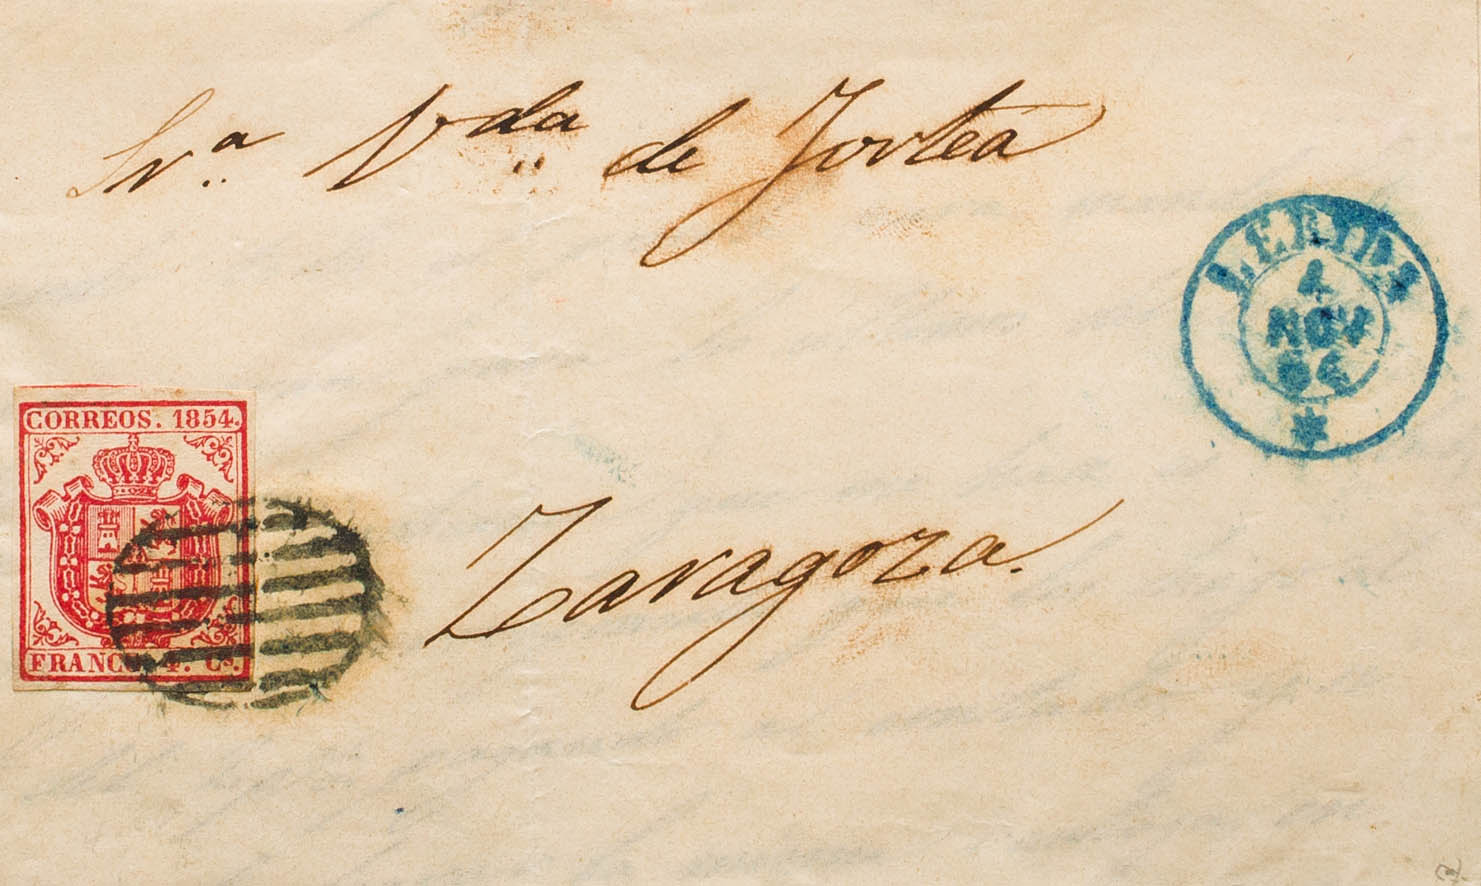 Sra. Vda de Jortea
LERIDA
4
NOV
54
CORREOS. 1854.
FRANCO. 4. Cs.
Zaragoza.